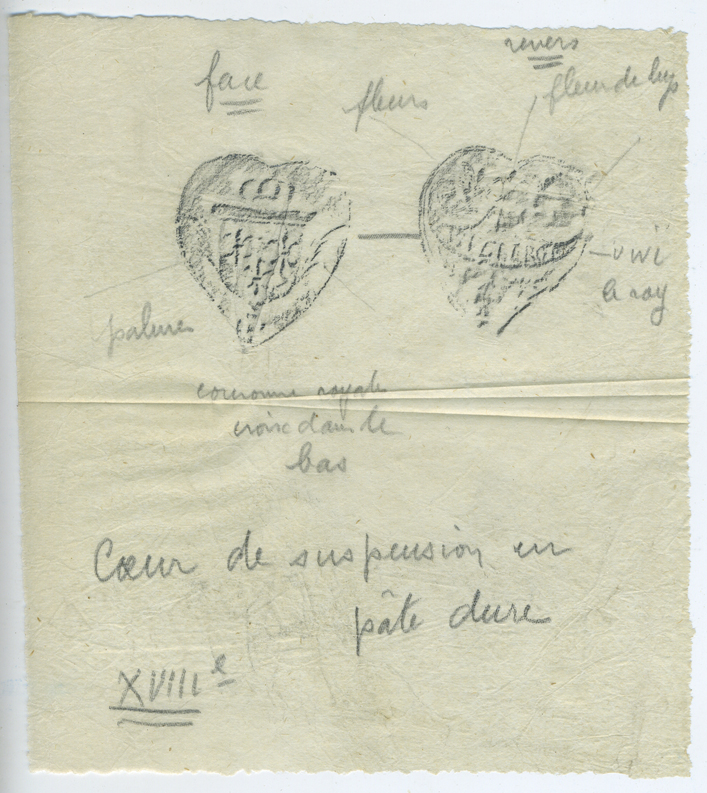 face
revers
fleurs
fleur de lys
vive
le roy
palmes
couronne royale
croix dans le
bas
Cœur de suspension en
pâte dure
XVIIIe